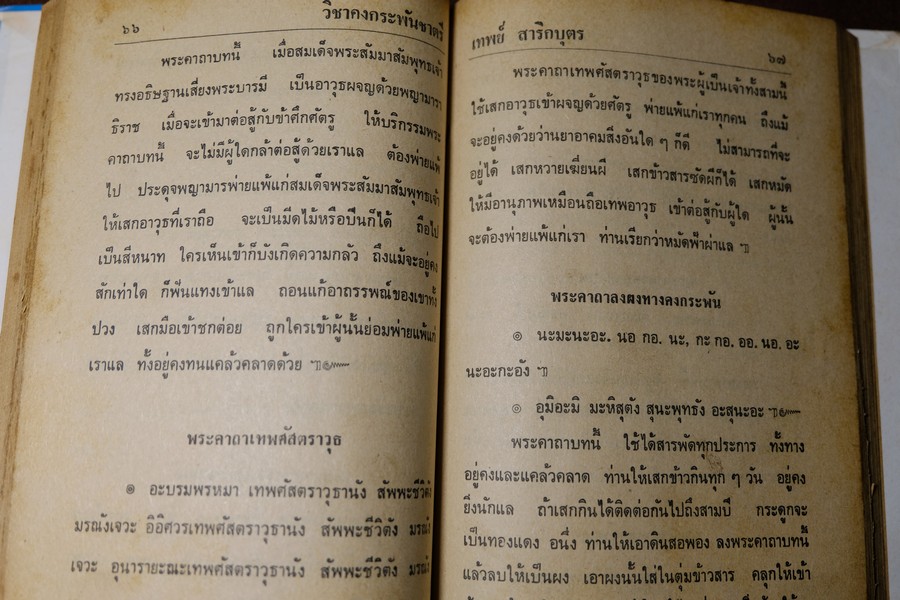 ๖๖
วิชาคงกระพันชาตรี
พระคาถาบทนี้ เมื่อสมเด็จพระสัมมาสัมพุทธเจ้า
ทรงอธิษฐานเสี่ยงพระบารมี เป็นอาวุธผญด้วยพญามารา
ธิราช เมื่อจะเข้ามาต่อสู้กับข้าศึกศัตรู ให้บริกรรมพระ
คาถาบทนี้ จะไม่มีผู้ใดกล้าต่อสู้ด้วยเราแล ต้องพ่ายแพ้
ไป ประดุจพญามารพ่ายแพ้แก่สมเด็จพระสัมมาสัมพุทธเจ้า
ให้เสกอาวุธที่เราถือ จะเป็นมีดไม้หรือปืนก็ได้ ถือไป
เป็นสีหนาท ใครเห็นเข้าก็บังเกิดความกลัว ถึงแม้จะอยู่คง
สักเท่าใด ก็ฟันแทงเข้าแล ถอนแก้อาถรรพณ์ของเขาทั้ง
ปวง เสกมือเข้าชกต่อย ถูกใครเข้าผู้นั้นย่อมพ่ายแพ้แก่
เราแล ทั้งอยู่คงทนแคล้วคลาดด้วย ฯ๛
พระคาถาเทพศัสตราวุธ
๏ อะบรมพรหมา เทพศัสตราวุธานัง สัพพะชีวิตัง
มรณังเจวะ อิอิศวรเทพศัสตราวุธานัง สัพพะชีวิตัง มรณัง
เจวะ อุนารายะณะเทพศัสตราวุธานัง สัพพะชีวิตัง มรณัง
เทพย์ สาริกบุตร
๖๗
พระคาถาเทพศัสตราวุธของพระผู้เป็นเจ้าทั้งสามนี้
ใช้เสกอาวุธเข้าผจญด้วยศัตรู พ่ายแพ้แก่เราทุกคน ถึงแม้
จะอยู่คงด้วยว่านยาอาคมสิ่งอันใด ๆ ก็ดี ไม่สามารถที่จะ
อยู่ได้ เสกหวายเฆี่ยนผี เสกข้าวสารซัดผีก็ได้ เสกหมัด
ให้มีอานุภาพเหมือนถือเทพอาวุธ เข้าต่อสู้กับผู้ใด ผู้นั้น
จะต้องพ่ายแพ้แก่เรา ท่านเรียกว่าหมัดฟ้าผ่าแล ฯ
พระคาถาลงผงทางคงกระพัน
๏ นะมะนะอะ. นอ กอ. นะ, กะ กอ. ออ. นอ. อะ
นะอะกะอัง ฯ
๏ อุมิอะมิ มะหิสุตัง สุนะพุทธัง อะสุนะอะ ฯ๛
พระคาถาบทนี้ ใช้ได้สารพัดทุกประการ ทั้งทาง
อยู่คงและแคล้วคลาด ท่านให้เสกข้าวกินทุก ๆ วัน อยู่คง
ยิ่งนักแล ถ้าเสกกินได้ติดต่อกันไปถึงสามปี กระดูกจะ
เป็นทองแดง อนึ่ง ท่านให้เอาดินสอพอง ลงพระคาถาบทนี้
แล้วลบให้เป็นผง เอาผงนั้นใส่ในตุ่มข้าวสาร คลุกให้เข้า